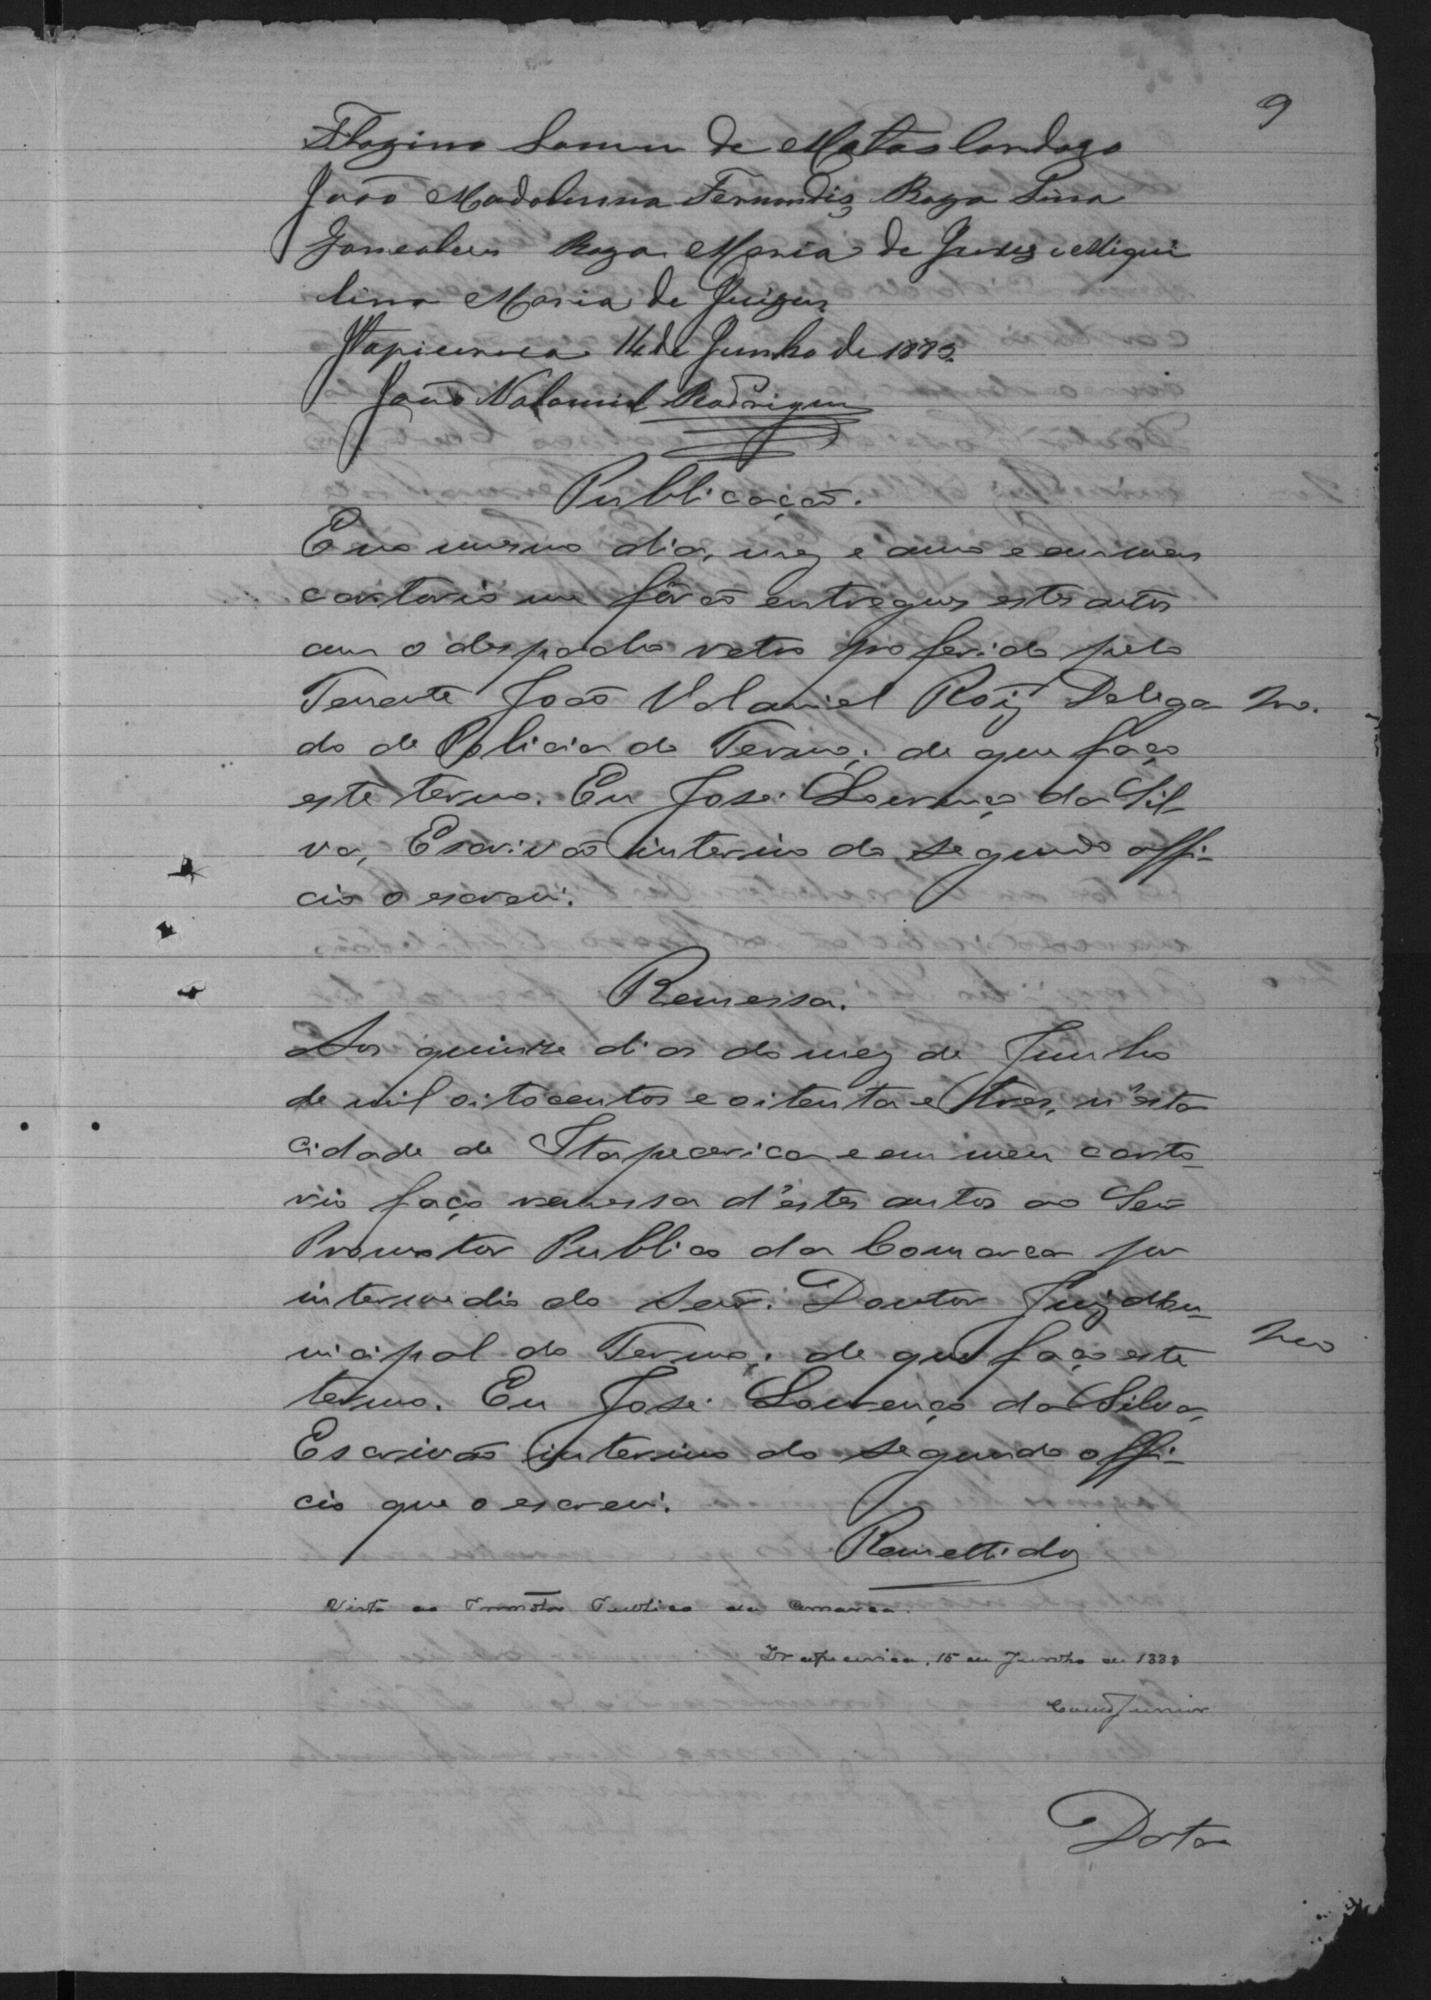 9
de Mattos Cardozo
João Madalenna Fernandis Roza Lina
Gonsalves Roza Maria de Jesus e Migui
lina Maria de
Itapicirica 14 de Junho de 1883.
João Natamiel Rodrigues
Publicação.
E no mesmo dia, mez e anno e em meu
cartorio me fôrão entregues estes autos
com o despacho retro proferido pelo
Tenente João Natamiel Roiz Delega
do de Policia do Termo; de que faço
este termo. Eu José Lourenço da Sil-
va, Escrivão interino do segundo offi-
cio o escrevi.
Remessa.
Aos quinze dias do mez de Junho
de mil oitocentos e oitenta e tres, n'esta
cidade de Itapecerica e em meu carto-
rio faço remessa d'estes autos ao Senr
Promotor Publico da Comarca por
intermedio do Senr. Doutor Juiz Mu-
nicipal do Termo; de que faço este
termo. Eu José Lourenço da Silva,
Escrivão interino do segundo offi-
cio que o escrevi.
Remettidos
Vista ao Promotor Publico da Comarca.
Itapecerica, 15 de Junho de 1883
Junior
Data